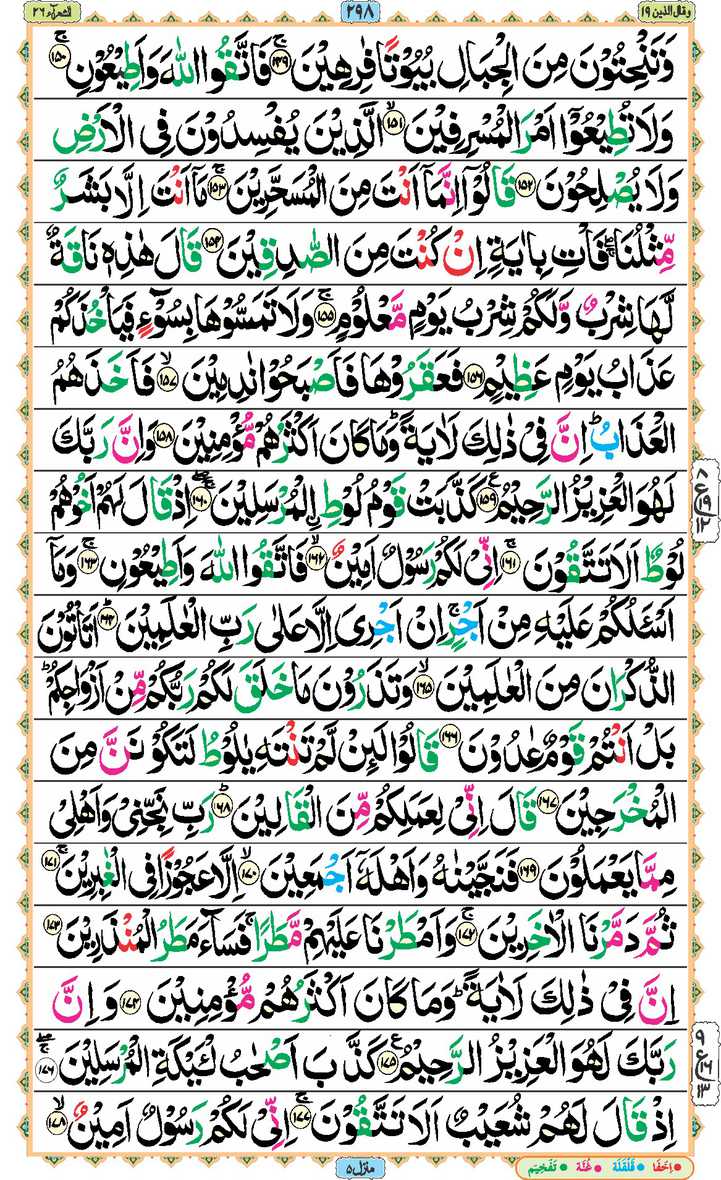 وقال الذین ١٩
٢٩٨
الشعرآء ٢٦
وَتَنْحِتُوْنَ مِنَ الْجِبَالِ بُيُوْتًا فٰرِهِيْنَۚ‏﴿۱۴۹﴾ فَاتَّقُوا اللّٰهَ وَاَطِيْعُوْنِۚ‏﴿۱۵۰﴾
وَلَا تُطِيْعُوْۤا اَمْرَ الْمُسْرِفِيْنَۙ‏﴿۱۵۱﴾ الَّذِيْنَ يُفْسِدُوْنَ فِى الْاَرْضِ
وَلَا يُصْلِحُوْنَ‏﴿۱۵۲﴾ قَالُوْۤا اِنَّمَاۤ اَنْتَ مِنَ الْمُسَحَّرِيْنَۚ‏﴿۱۵۳﴾ مَاۤ اَنْتَ اِلَّا بَشَرٌ
مِّثْلُنَا ۖۚ فَاْتِ بِاٰيَةٍ اِنْ كُنْتَ مِنَ الصّٰدِقِيْنَ‏﴿۱۵۴﴾ قَالَ هٰذِهٖ نَاقَةٌ
لَّهَا شِرْبٌ وَّلَكُمْ شِرْبُ يَوْمٍ مَّعْلُوْمٍۚ‏﴿۱۵۵﴾ وَلَا تَمَسُّوْهَا بِسُوْٓءٍ فَيَاْخُذَكُمْ
عَذَابُ يَوْمٍ عَظِيْمٍ‏﴿۱۵۶﴾ فَعَقَرُوْهَا فَاَصْبَحُوْا نٰدِمِيْنَۙ‏﴿۱۵۷﴾ فَاَخَذَهُمُ
الْعَذَابُ‌ؕ اِنَّ فِىْ ذٰلِكَ لَاٰيَةً‌ ؕ وَمَا كَانَ اَكْثَرُهُمْ مُّؤْمِنِيْنَ‏﴿۱۵۸﴾ وَاِنَّ رَبَّكَ
لَهُوَ الْعَزِيْزُ الرَّحِيْمُ‏﴿۱۵۹﴾ كَذَّبَتْ قَوْمُ لُوْطِ ۨالْمُرْسَلِيْنَ ۖۚ‏﴿۱۶۰﴾ اِذْ قَالَ لَهُمْ اَخُوْهُمْ
لُوْطٌ اَلَا تَتَّقُوْنَۚ‏﴿۱۶۱﴾ اِنِّىْ لَكُمْ رَسُوْلٌ اَمِيْنٌۙ‏﴿۱۶۲﴾ فَاتَّقُوا اللّٰهَ وَاَطِيْعُوْنِۚ‏﴿۱۶۳﴾ وَمَاۤ
اَسْـَٔلُكُمْ عَلَيْهِ مِنْ اَجْرٍ‌ۚ اِنْ اَجْرِىَ اِلَّا عَلٰى رَبِّ الْعٰلَمِيْنَؕ‏﴿۱۶۴﴾ اَتَاْتُوْنَ
الذُّكْرَانَ مِنَ الْعٰلَمِيْنَۙ‏﴿۱۶۵﴾ وَتَذَرُوْنَ مَا خَلَقَ لَكُمْ رَبُّكُمْ مِّنْ اَزْوَاجِكُمْ‌ؕ
بَلْ اَنْتُمْ قَوْمٌ عٰدُوْنَ‏﴿۱۶۶﴾ قَالُوْا لَئِنْ لَّمْ تَنْتَهِ يٰلُوْطُ لَتَكُوْنَنَّ مِنَ
الْمُخْرَجِيْنَ‏﴿۱۶۷﴾ قَالَ اِنِّىْ لِعَمَلِكُمْ مِّنَ الْقَالِيْنَؕ‏﴿۱۶۸﴾ رَبِّ نَجِّنِىْ وَاَهْلِىْ
مِمَّا يَعْمَلُوْنَ‏﴿۱۶۹﴾ فَنَجَّيْنٰهُ وَاَهْلَهٗۤ اَجْمَعِيْنَۙ‏﴿۱۷۰﴾ اِلَّا عَجُوْزًا فِى الْغٰبِرِيْنَۚ‏﴿۱۷۱﴾
ثُمَّ دَمَّرْنَا الْاٰخَرِيْنَۚ‏﴿۱۷۲﴾ وَاَمْطَرْنَا عَلَيْهِمْ مَّطَرًا‌ۚ فَسَآءَ مَطَرُ الْمُنْذَرِيْنَ‏﴿۱۷۳﴾
اِنَّ فِىْ ذٰلِكَ لَاٰيَةً‌ ؕ وَمَا كَانَ اَكْثَرُهُمْ مُّؤْمِنِيْنَ‏﴿۱۷۴﴾ وَاِنَّ
رَبَّكَ لَهُوَ الْعَزِيْزُ الرَّحِيْمُ‏﴿۱۷۵﴾ كَذَّبَ اَصْحٰبُ لْــَٔيْكَةِ الْمُرْسَلِيْنَ ۖۚ‏﴿۱۷۶﴾
اِذْ قَالَ لَهُمْ شُعَيْبٌ اَلَا تَتَّقُوْنَۚ‏﴿۱۷۷﴾ اِنِّىْ لَكُمْ رَسُوْلٌ اَمِيْنٌۙ‏﴿۱۷۸﴾
منزل ۵
اِخْفَا قَلْقَلَة غُنَّة تَفْخِيْم